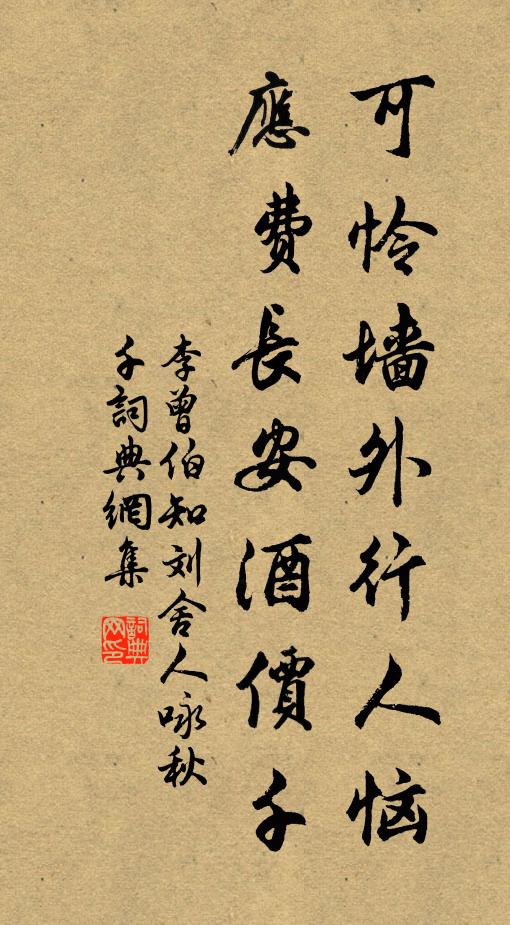 可怜墙外行人恼
應费長安酒價千
李曾伯知刘舍人咏秋
千詞典網集
詞典网印